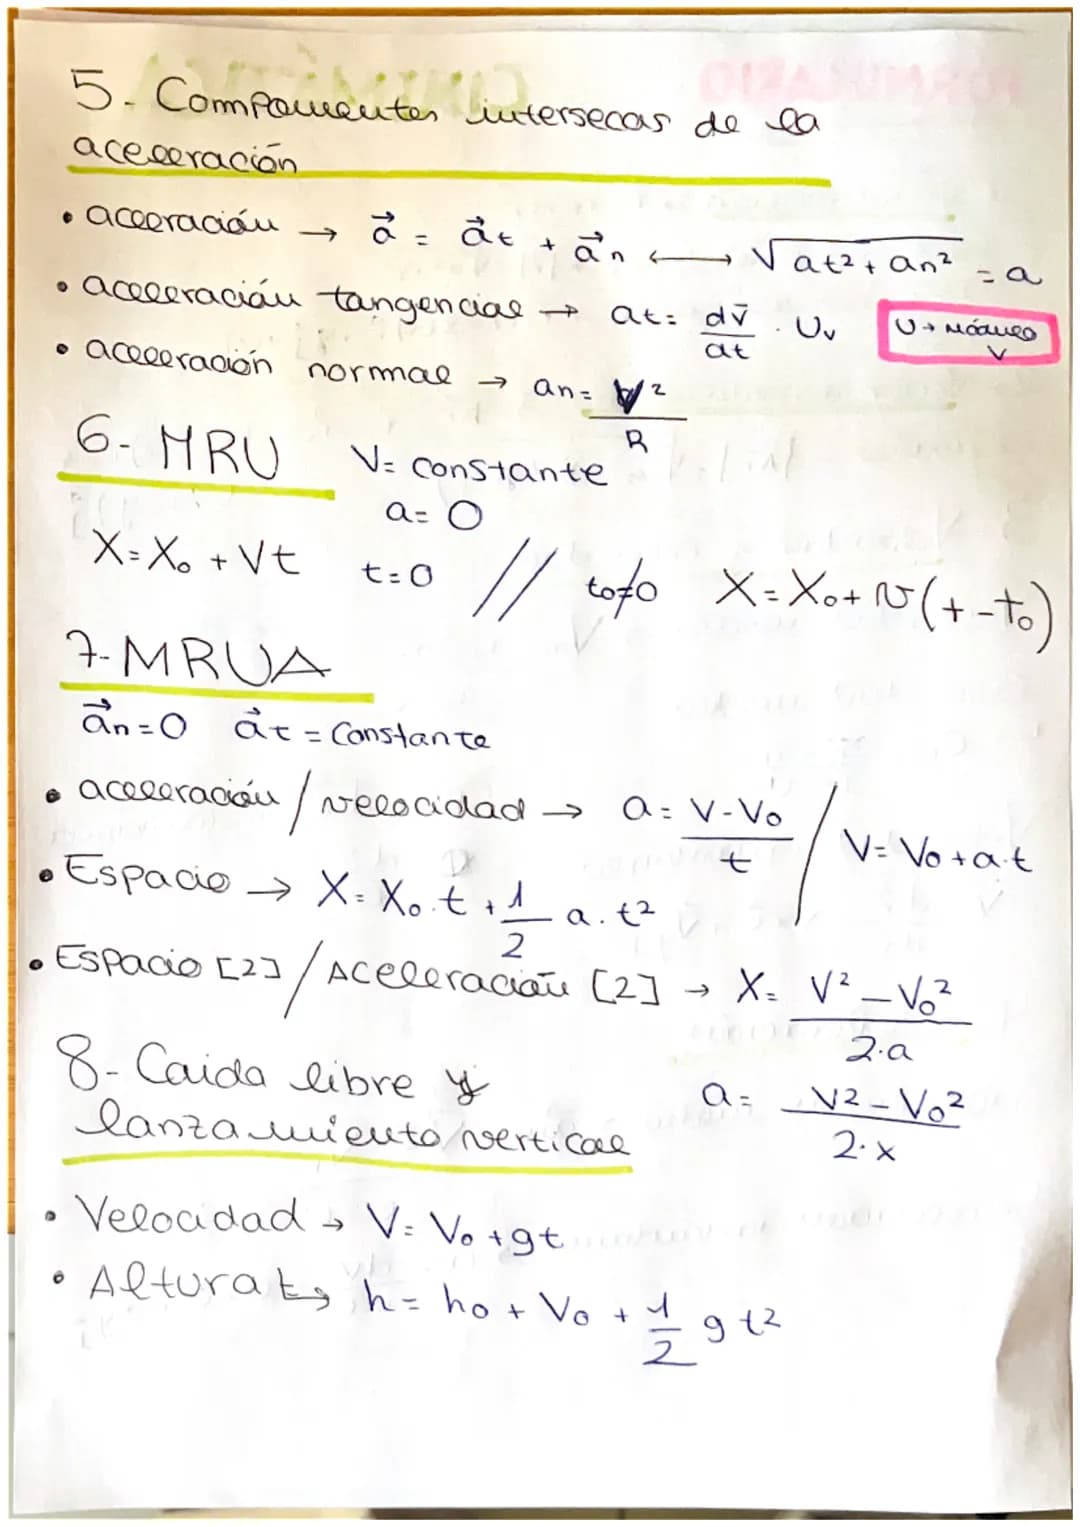 5- Componentes intersecas de la
aceleración
• aceeración → a⃗ = a⃗t + a⃗n ⟷ √at²+an² = a
• aceleración tangencial → at= dv⃗/at · Uv
U→ Módulo v
• aceleración normal → an= V²/R
6- MRU V= constante
a= 0
X=X₀ + Vt t=0 // to≠0 X=X₀+v(t-t₀)
7-MRUA
a⃗n=0 a⃗t = Constante
• aceleración / velocidad → a= V-V₀/t / V= V₀+a·t
• Espacio → X= X₀.t + 1/2 a.t²
• Espacio [2] / Aceleración [2] → X= V²-V₀²/2·a
a= V²-V₀²/2·x
8- Caida libre y
lanzamiento vertical
• Velocidad → V= V₀ +gt
• Altura t→ h= h₀ + V₀ + 1/2 g t²